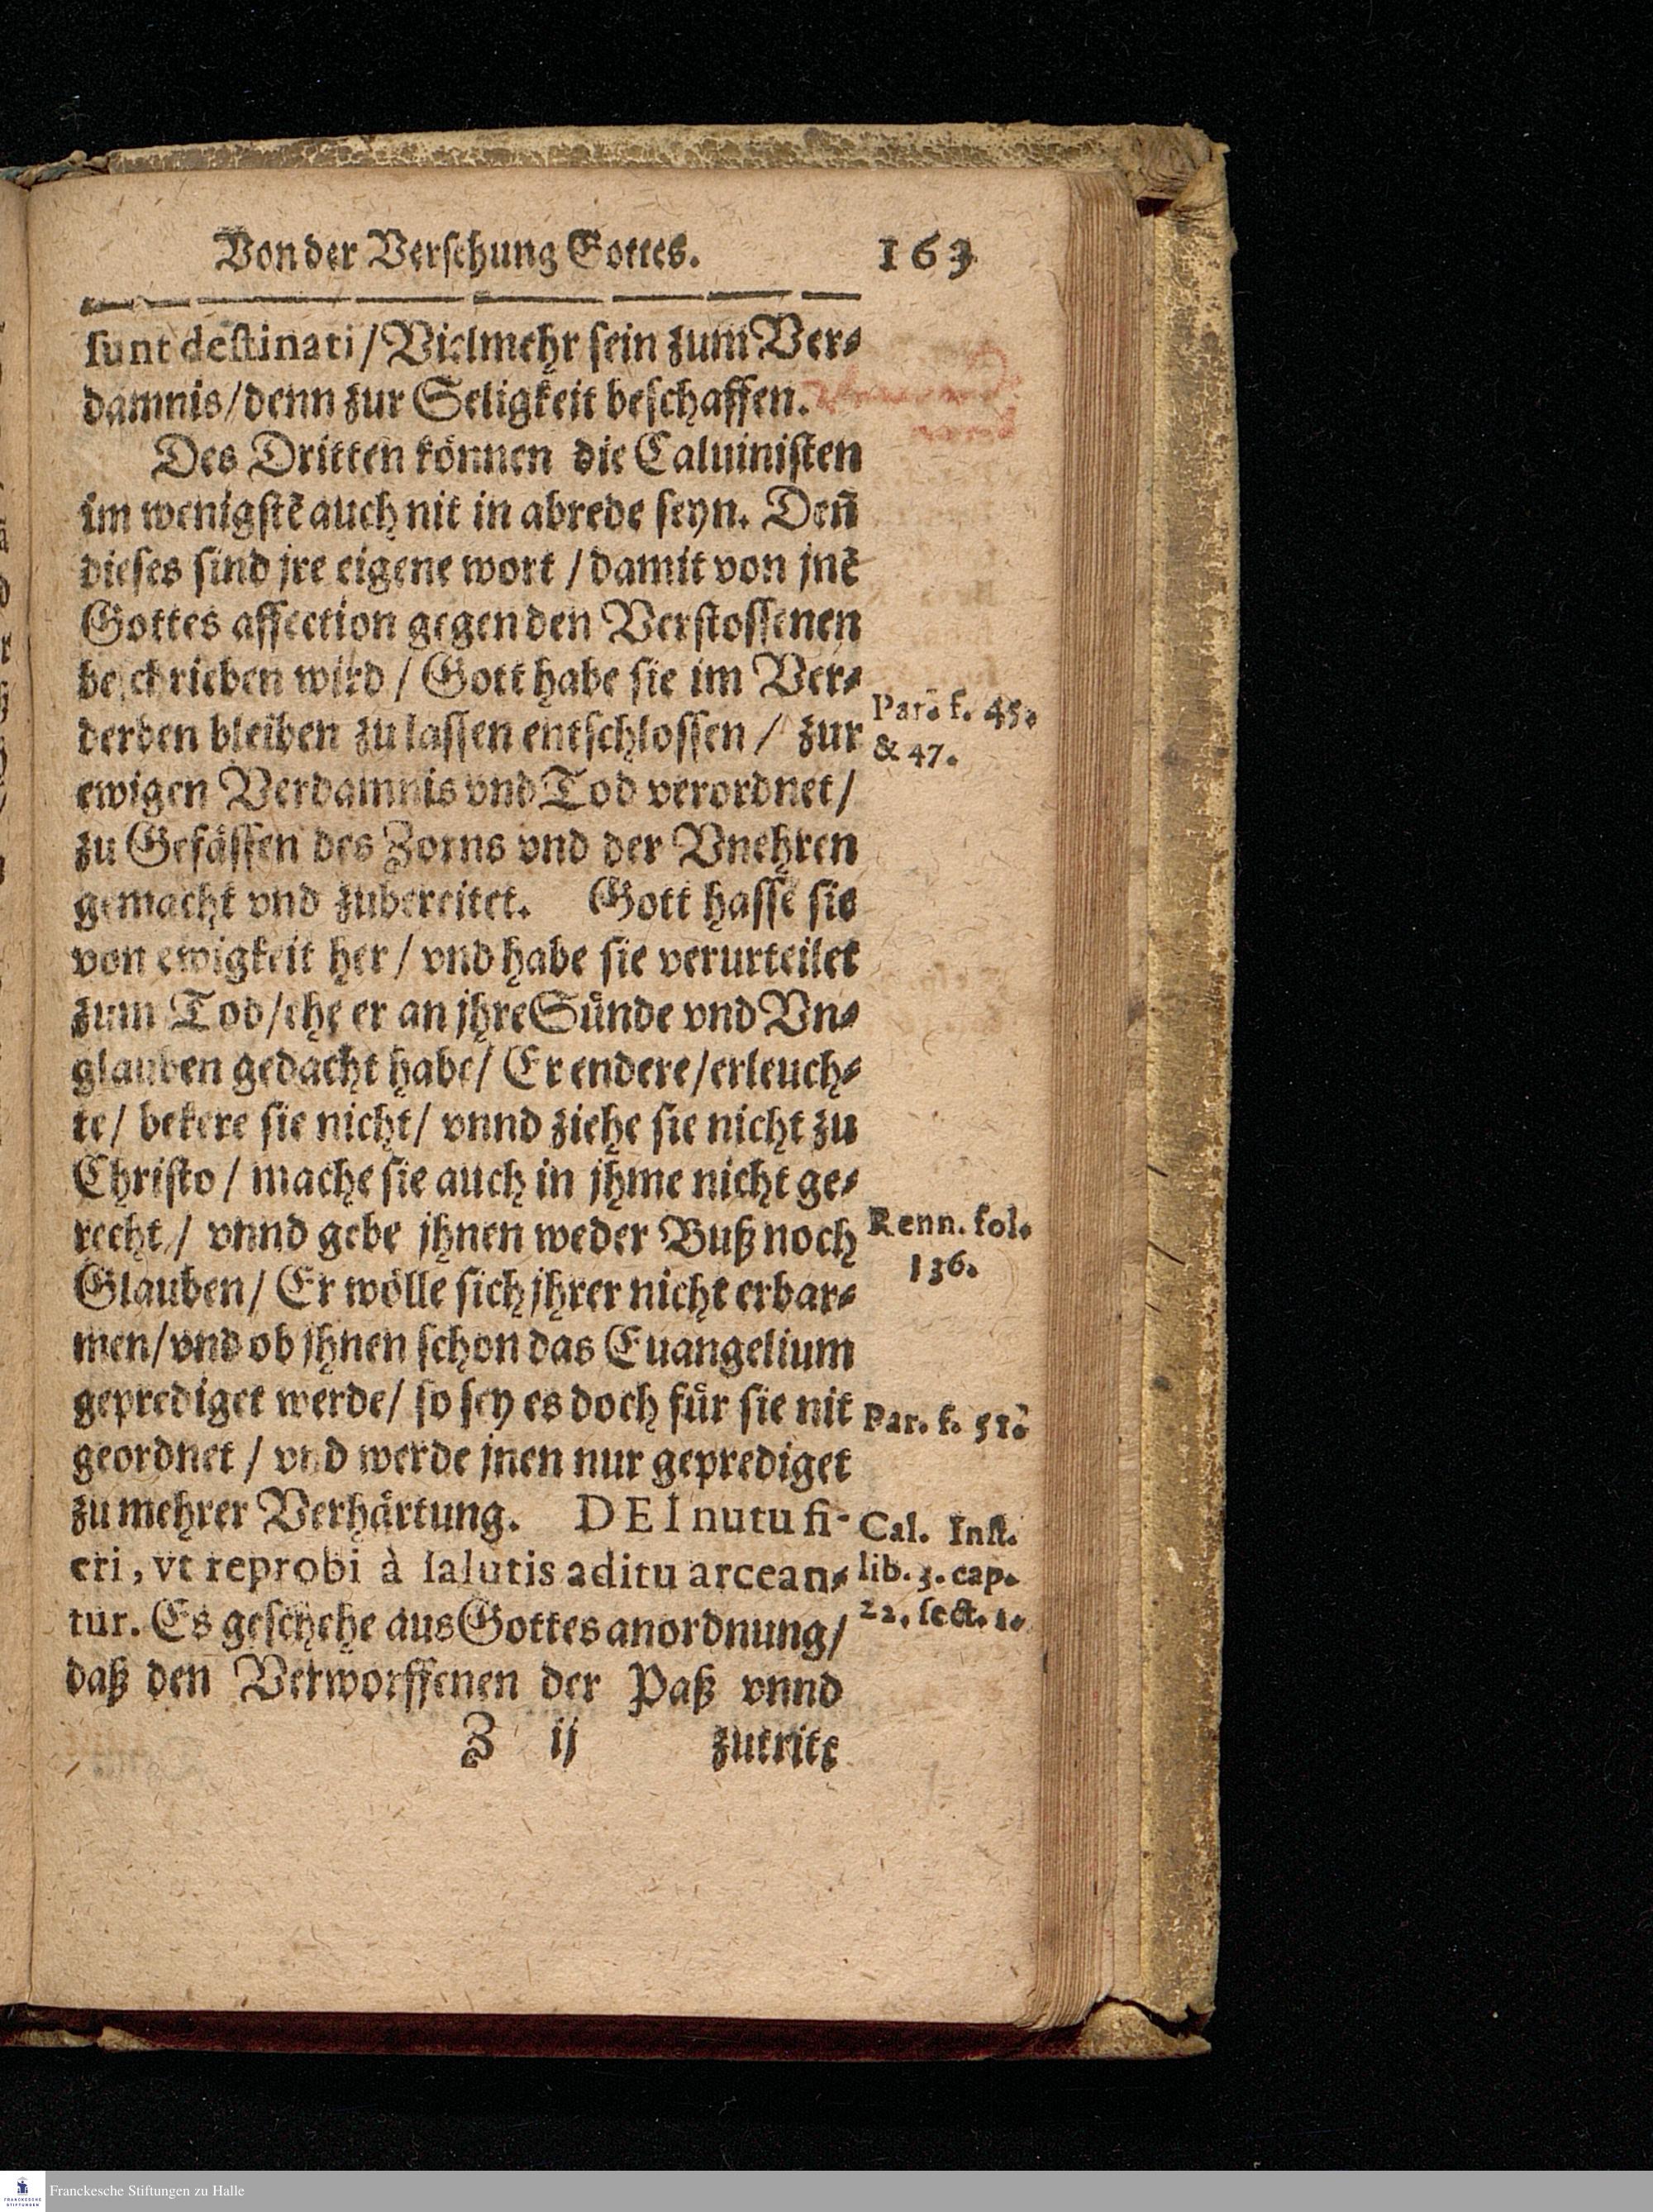 Von der Versehung Gottes. 163
ſunt deſtinati / Vielmehr ſein zum Ver⸗
damnis / denn zur Seligkeit beſchaffen.
Des Dritten können die Caluiniſten
im wenigſtē auch nit in abrede ſeyn. Deñ
dieſes ſind jre eigene wort / damit von jnē
Gottes affection gegen den Verſtoſſenen
beſchrieben wird / Gott habe ſie im Ver⸗
Par. f. 45.
derben bleiben zu laſſen entſchloſſen / zur
& 47.
ewigen Verdamnis vnd Tod verordnet /
zu Gefäſſen des Zorns vnd der Vnehren
gemacht vnd zubereitet. Gott haſſe ſie
von ewigkeit her / vnd habe ſie verurteilet
zum Tod / ehe er an jhre Sünde vnd Vn⸗
glauben gedacht habe / Er endere / erleuch⸗
te / bekere ſie nicht / vnnd ziehe ſie nicht zu
Chriſto / mache ſie auch in jhme nicht ge⸗
recht / vnnd gebe jhnen weder Buß noch
Renn. fol.
136.
Glauben / Er wölle ſich jhrer nicht erbar⸗
men / vnd ob jhnen ſchon das Euangelium
geprediget werde / ſo ſey es doch für ſie nit
Par. f. 51.
geordnet / vnd werde jnen nur geprediget
zu mehrer Verhärtung. DEI nutu fi-
Cal. Inſt.
eri, vt reprobi à ſalutis aditu arcean⸗
lib. 3. cap.
tur. Es geſchehe aus Gottes anordnung /
22. ſect. 1.
daß den Verworffenen der Paß vnnd
Z ij zutritt
Franckesche Stiftungen zu Halle